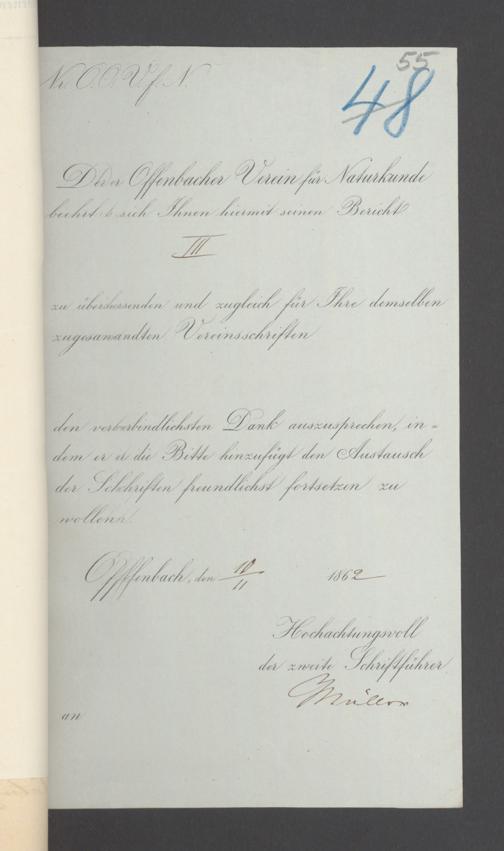 55
48
No. O. V. f. N.
Der Offenbacher Verein für Naturkunde
beehrt sich Ihnen hiermit seinen Bericht
III
zu übersenden und zugleich für Ihre demselben
zugesandten Vereinsschriften
den verbindlichsten Dank auszusprechen, in-
dem er die Bitte hinzufügt den Austausch
der Schriften freundlichst fortsetzen zu
wollen.
Offenbach, den 10/11 1862
Hochachtungsvoll
der zweite Schriftführer
Müller
an